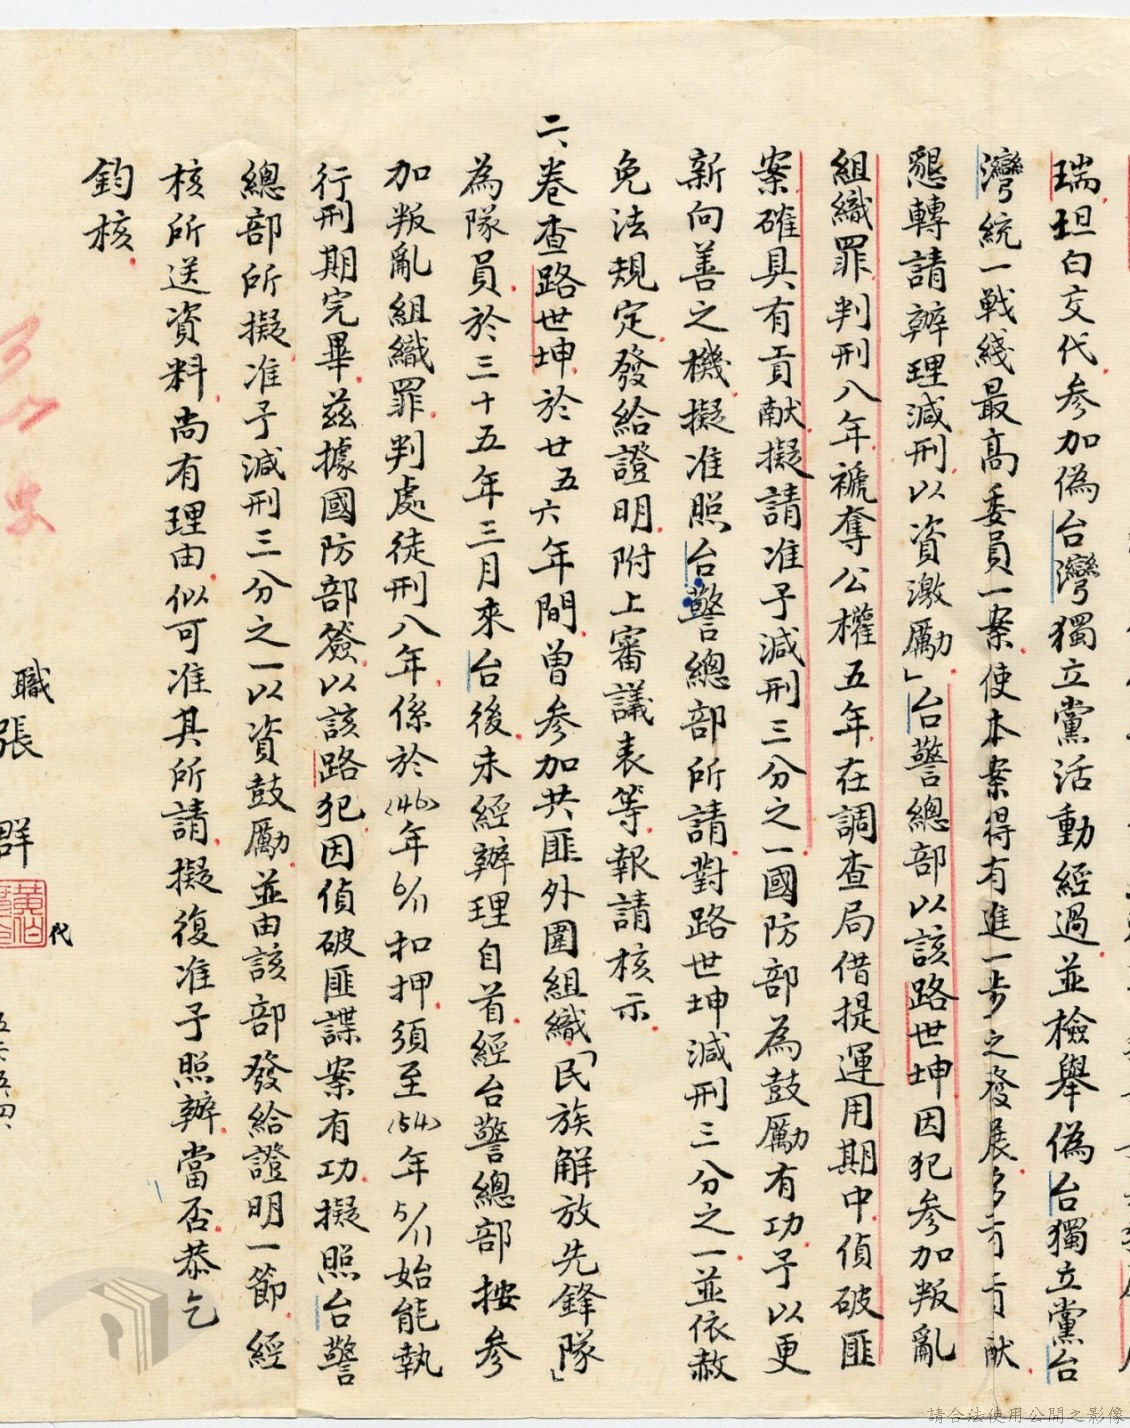 瑞.坦白交代參加偽台灣獨立黨活動經過.並檢舉偽台獨立黨台
灣統一戰綫最高委員一案.使本案得有進一步之發展.多有貢献.
懇轉請辦理減刑.以資激勵.」台警總部以該路世坤因犯參加叛亂
組織罪.判刑八年.褫奪公權五年.在調查局借提運用期中.偵破匪
案.確具有貢献.擬請准予減刑三分之一.國防部為鼓勵有功.予以更
新向善之機.擬准照台警總部所請.對路世坤減刑三分之一.並依赦
免法規定.發給證明.附上審議表等.報請核示.
二、卷查路世坤.於廿五六年間.曾參加共匪外圍組織.「民族解放先鋒隊」
為隊員.於三十五年三月來台後.未經辦理自首.經台警總部按參
加叛亂組織罪.判處徒刑八年.係於(46)年6/11扣押.須至(54)年5/11始能執
行刑期完畢.茲據國防部簽.以該路犯因偵破匪諜案有功.擬照台警
總部所擬.准予減刑三分之一以資鼓勵.並由該部發給證明一節.經
核所送資料.尚有理由.似可准其所請.擬復准予照辦.當否.恭乞
鈞核.
職張 群
代
黃伯
五六五四
請合法使用公開之影像